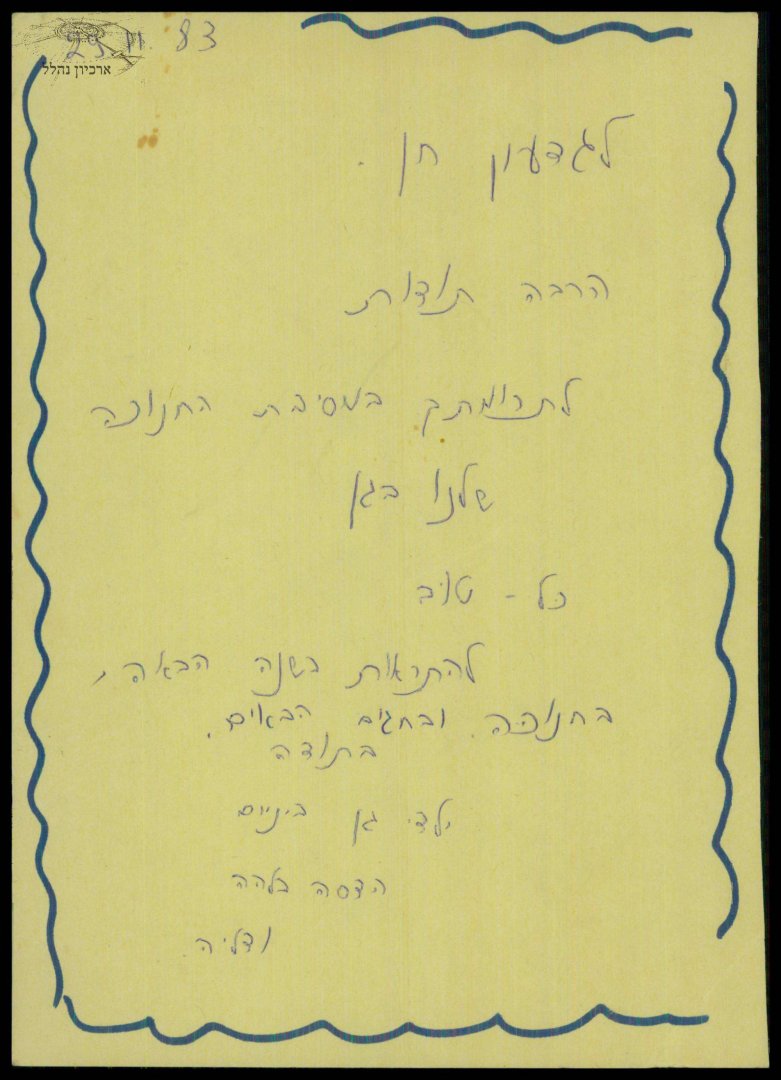 29.11.83
ארכיון נהלל
לגדעון חן.
הרבה תודות
לתרומתך במסיבת החנוכה
שלנו בגן
כל - טוב
להתראות בשנה הבאה,
בחנוכה ובחגים הבאים.
בתודה
ילדי גן ביניים
הדסה בלהה
ודליה